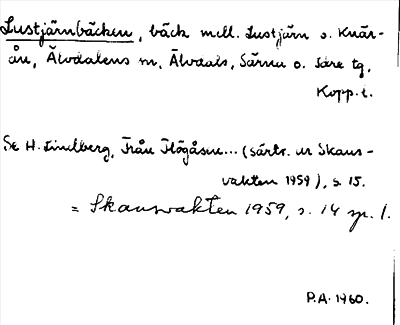 Lustjärnbäcken, bäck mell. Lustjärn o. Knär-
ån, Älvdalens sn, Älvdals, Särna o. Idre tg,
Kopp. l.
Se H. Lindberg, Från Högåsen... (särtr. ur Skans-
vakten 1959), s. 15.
= Skansvakten 1959, s. 14 sp. 1.
P.A. 1960.